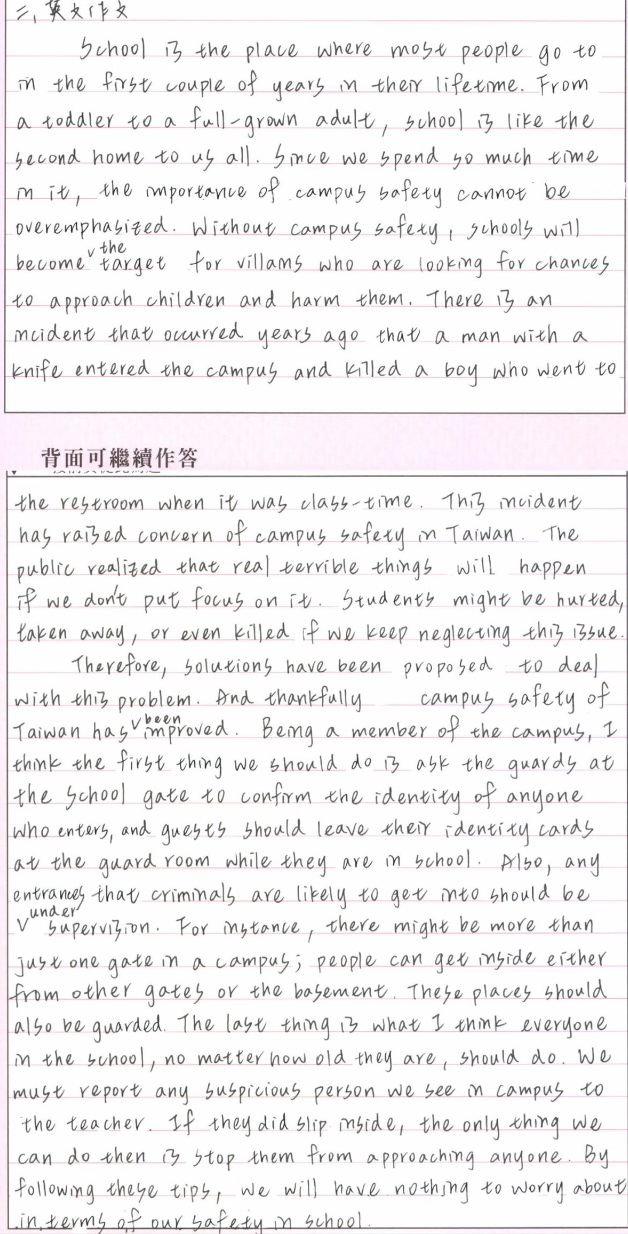 二、英文作文
School is the place where most people go to
in the first couple of years in their lifetime. From
a toddler to a full-grown adult, school is like the
second home to us all. Since we spend so much time
in it, the importance of campus safety cannot be
overemphasized. Without campus safety, schools will
become the target for villains who are looking for chances
to approach children and harm them. There is an
incident that occurred years ago that a man with a
knife entered the campus and killed a boy who went to
背面可繼續作答
the restroom when it was class-time. This incident
has raised concern of campus safety in Taiwan. The
public realized that real terrible things will happen
if we don't put focus on it. Students might be hurted,
taken away, or even killed if we keep neglecting this issue.
Therefore, solutions have been proposed to deal
with this problem. And thankfully campus safety of
Taiwan has been improved. Being a member of the campus, I
think the first thing we should do is ask the guards at
the school gate to confirm the identity of anyone
who enters, and guests should leave their identity cards
at the guard room while they are in school. Also, any
entrances that criminals are likely to get into should be
under supervision. For instance, there might be more than
just one gate in a campus; people can get inside either
from other gates or the basement. These places should
also be guarded. The last thing is what I think everyone
in the school, no matter how old they are, should do. We
must report any suspicious person we see in campus to
the teacher. If they did slip inside, the only thing we
can do then is stop them from approaching anyone. By
following these tips, we will have nothing to worry about
in terms of our safety in school.